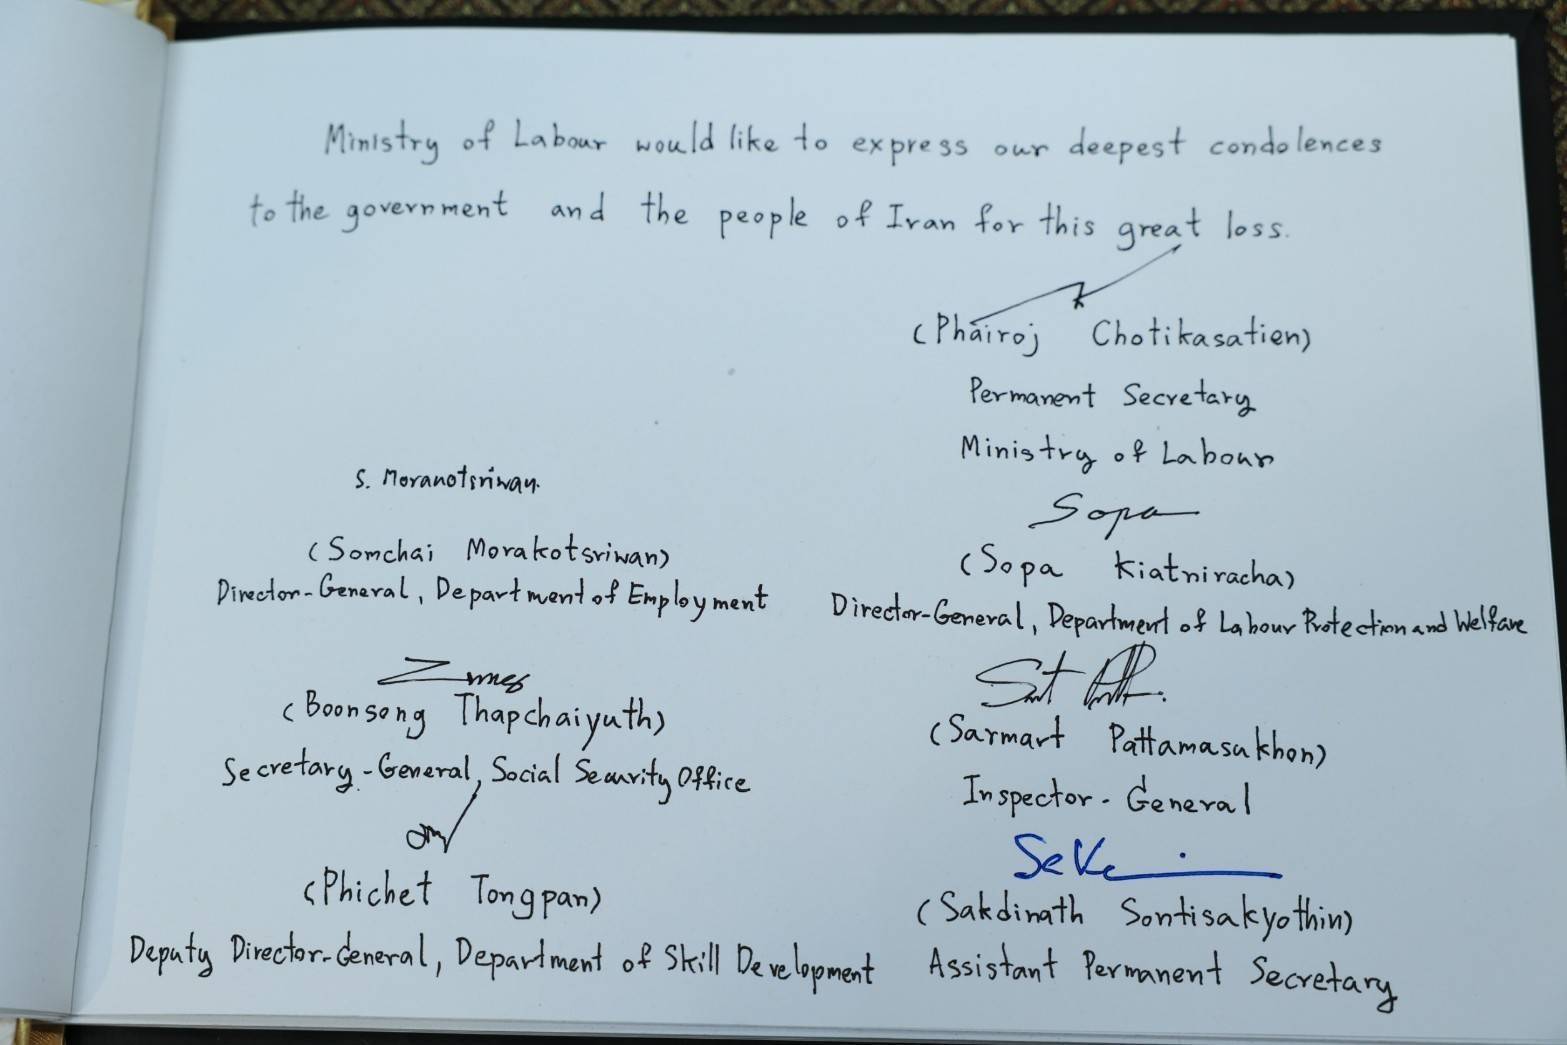 Ministry of Labour would like to express our deepest condolences
to the government and the people of Iran for this great loss.
(Phairoj Chotikasatien)
Permanent Secretary
Ministry of Labour
S. Moranotsriwan.
(Somchai Morakotsriwan)
Director-General, Department of Employment
Sopa
(Sopa Kiatniracha)
Director-General, Department of Labour Protection and Welfare
(Boonsong Thapchaiyuth)
Secretary-General, Social Security Office
(Sarmart Pattamasukhon)
Inspector-General
(Phichet Tongpan)
Deputy Director-General, Department of Skill Development
(Sakdinath Sontisakyothin)
Assistant Permanent Secretary